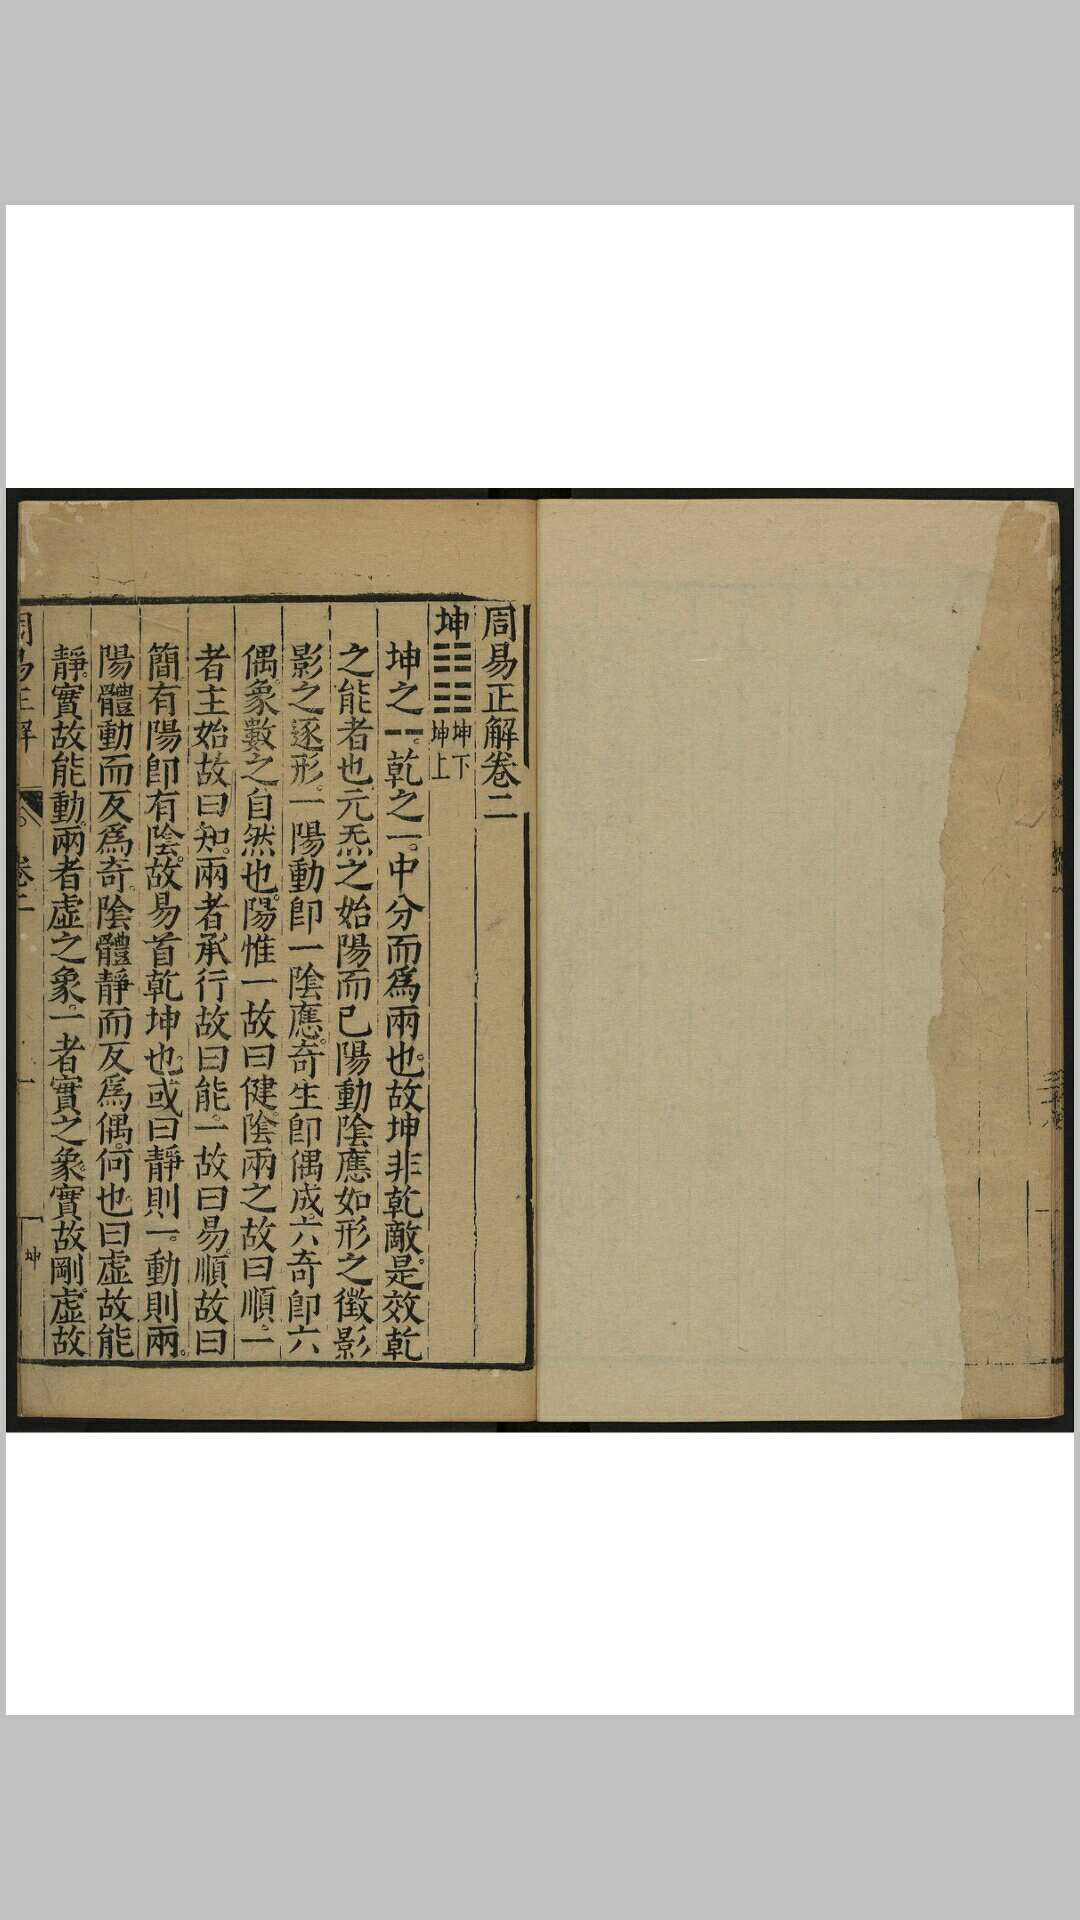 周易正解卷二
坤䷁坤下坤上
坤之⚋。乾之一。中分而爲兩也。故坤非乾敵。是效乾
之能者也。元炁之始陽而已陽動陰應如形之徵影
影之逐形。一陽動卽一陰應。奇生卽偶成。六奇卽六
偶。象數之自然也。陽惟一故曰健。陰兩之故曰順。一
者主始故曰知。兩者承行故曰能。一故曰易。順故曰
簡有陽卽有陰。故易首乾坤也。或曰靜則一。動則兩。
陽體動而反爲奇。陰體靜而反爲偶。何也。曰虛故能
靜。實故能動。兩者虛之象。一者實之象。實故剛。虛故
周易正解
卷二
一
坤